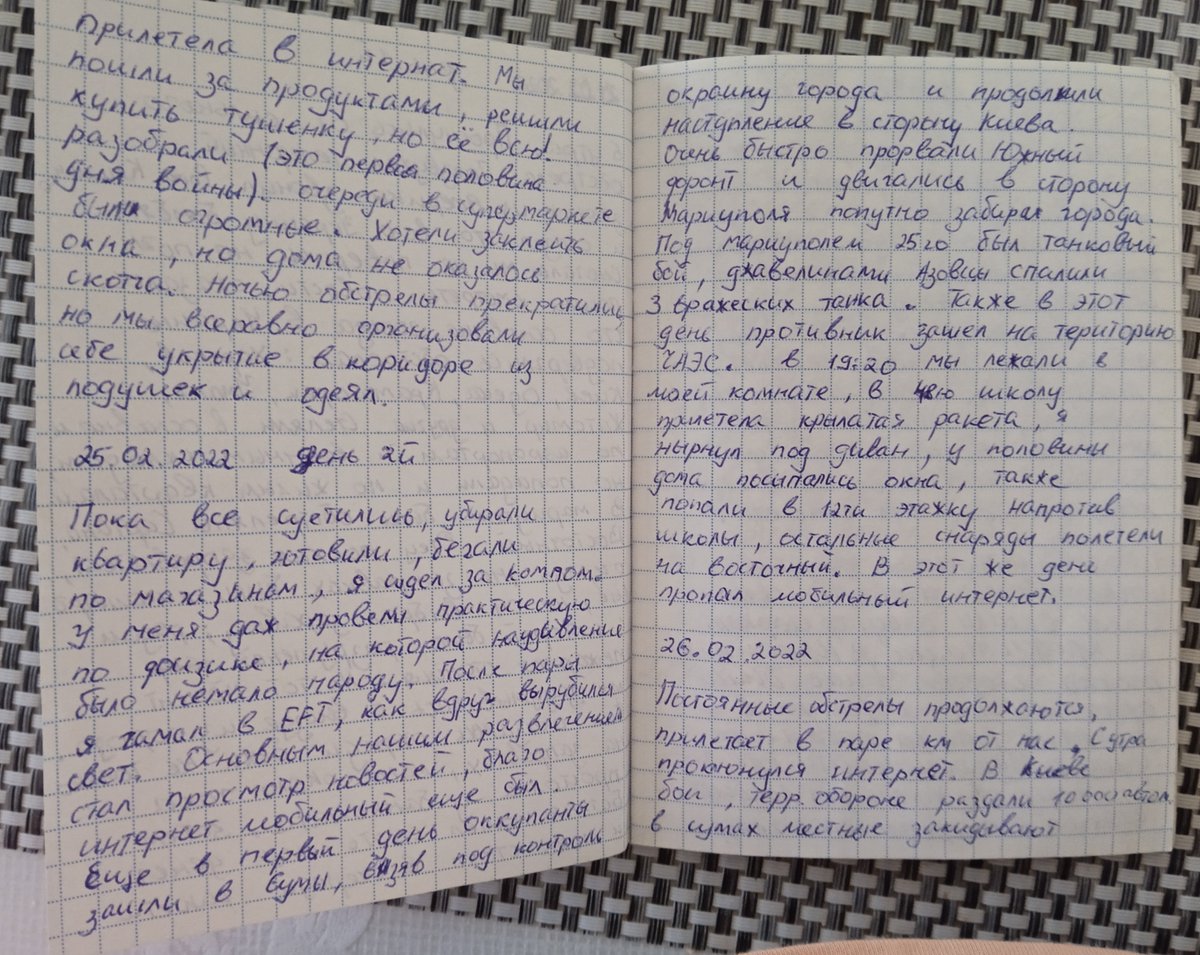 прилетела в интернат. Мы
пошли за продуктами, решили
купить тушенку, но её всю
разобрали (это первая половина
дня войны). очереди в супермаркете
были огромные. Хотели заклеить
окна, но дома не оказалось
скотча. ночью обстрелы прекратились
но мы всеравно организовали
себе укрытие в коридоре из
подушек и одеял.
25.02.2022 день 2й
Пока все суетились, убирали
квартиру, готовили, бегали
по магазинам, я сидел за компом.
У меня даж провели практическую
по физике, на которой наудивление
было немало народу. После пары
я гамал в EFT, как вдруг вырубился
свет. Основным нашим развлечением
стал просмотр новостей, благо
интернет мобильный еще был.
Еще в первый день оккупанты
зашли в Сумы, взяв под контроль
окраину города и продолжили
наступление в сторону Киева.
Очень быстро прорвали Южный
фронт и двигались в сторону
Мариуполя попутно забирая города.
Под мариуполем 25го был танковый
бой, джавелинами Азовцы спалили
3 вражеских танка. Также в этот
день противник зашел на територию
ЧАЭС. в 19:20 мы лежали в
моей комнате, в школу
прилетела крылатая ракета, я
нырнул под диван, у половины
дома посыпались окна, также
попали в 12ти этажку напротив
школы, остальные снаряды полетели
на восточный. В этот же день
пропал мобильный интернет.
26.02.2022
Постоянные обстрелы продолжаются,
прилетает в паре км от нас. С утра
проклюнулся интернет. В Киеве
бои, терр. обороне раздали автом.
в сумах местные закидывают